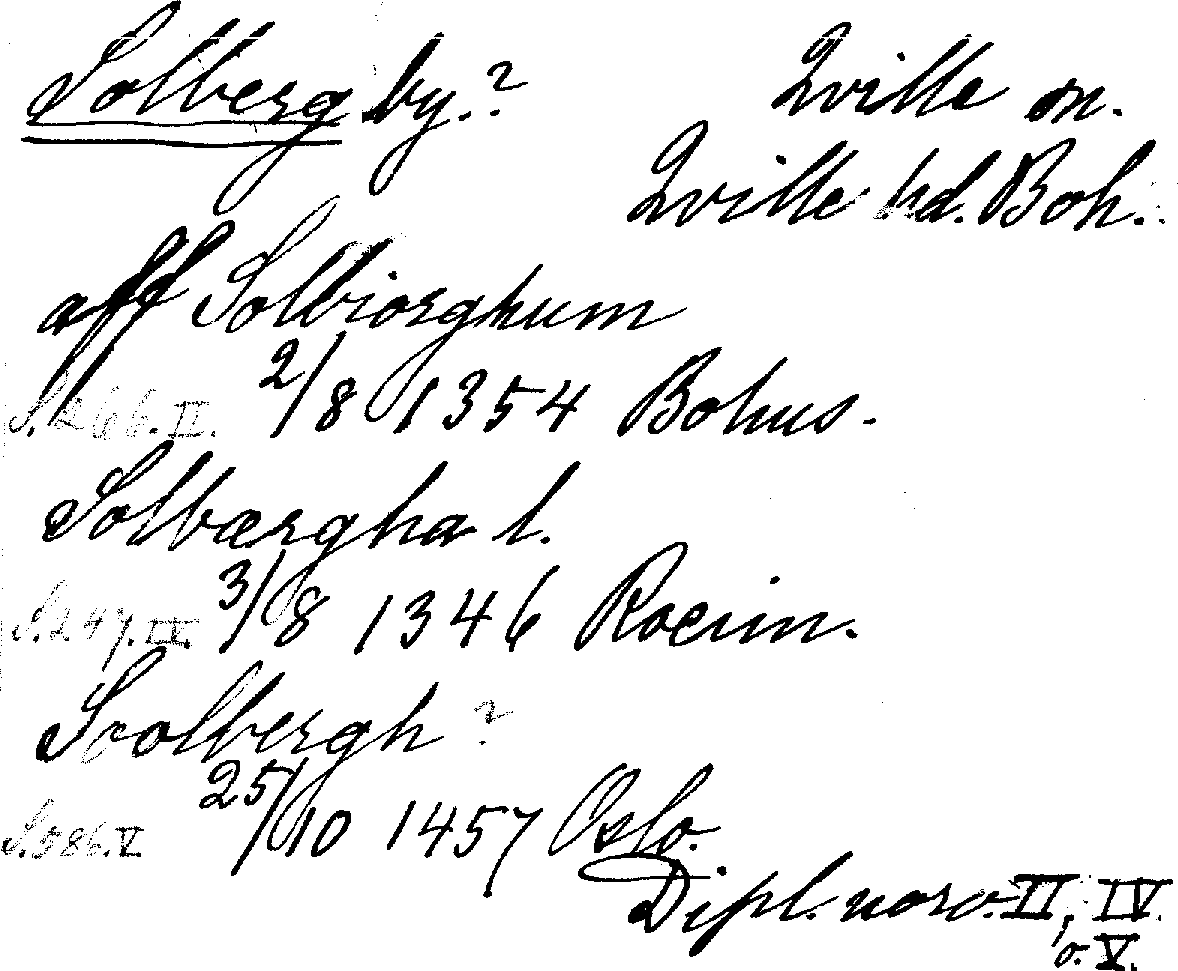 Solberg by.? Qville sn.
Qville hd. Boh.
aff Solbiorghum
S. 266. II. 2/8 1354 Bohus.
Solbærgha l.
S. 247. IV. 3/8 1346
Soolbergh ?
S. 586. V. 25/10 1457 Oslo.
Dipl. norv. II, IV.
o. V.